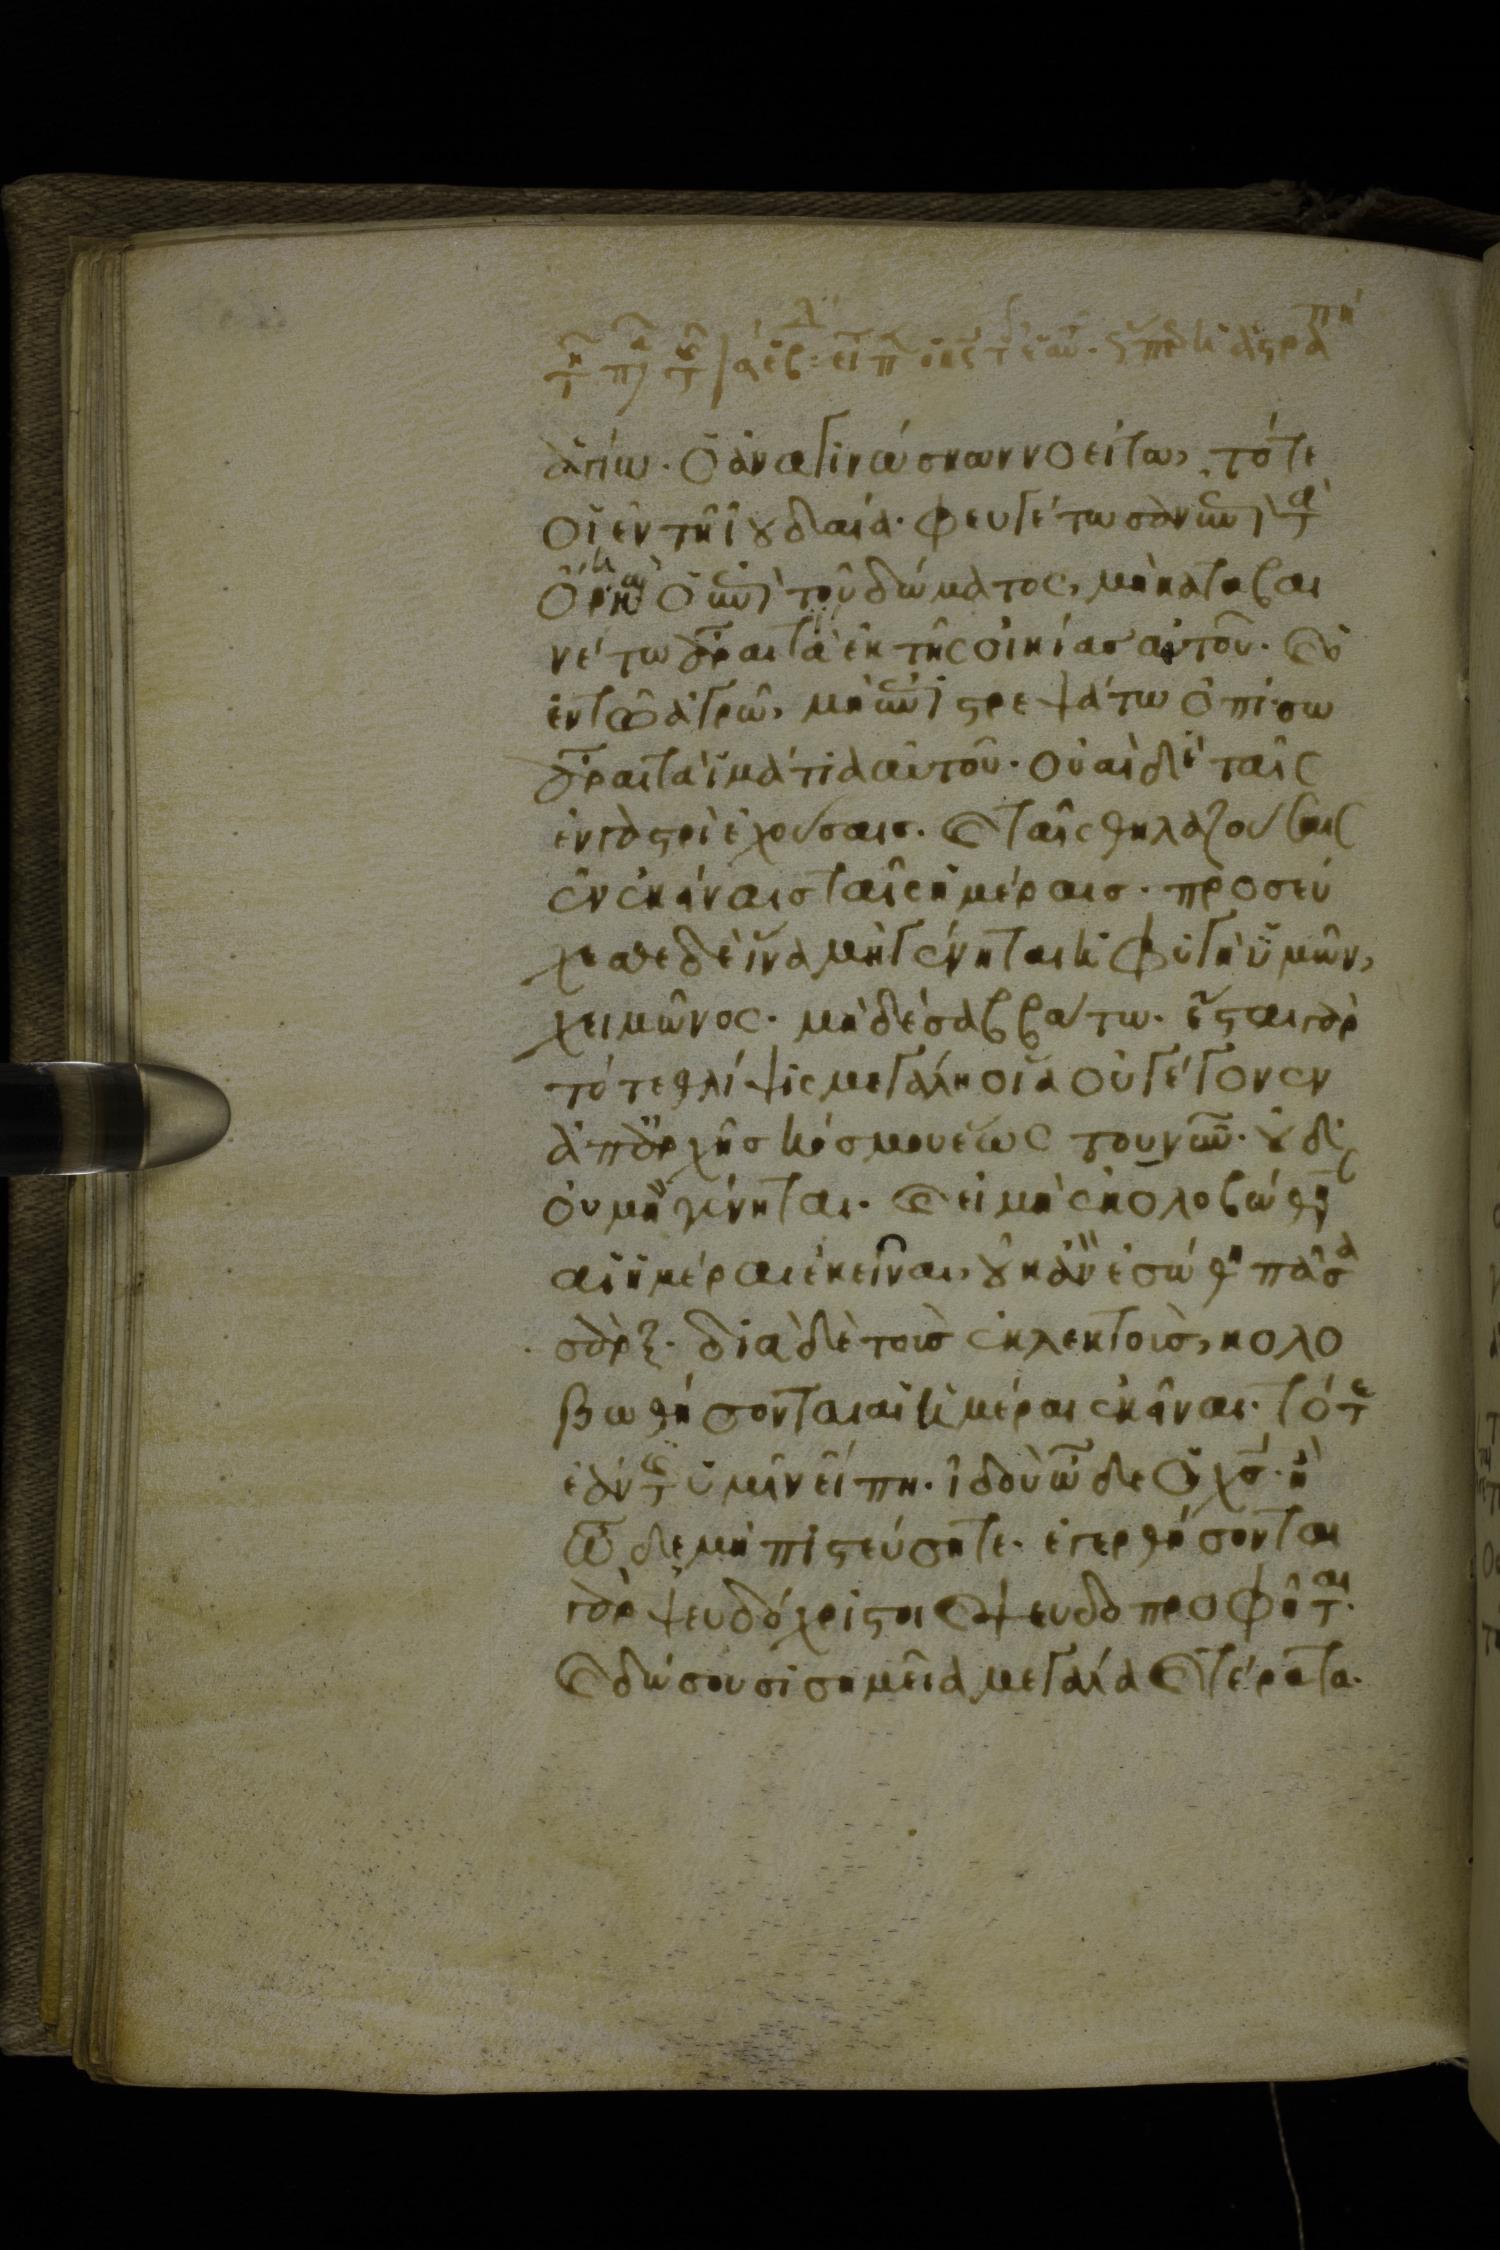 ἁγίω. ὁ ἀναγινώσκων νοείτω, τότε
οἱ ἐν τῆ ἰουδαία. φευγέτωσαν ἐπὶ τὰ
ὄρη. καὶ ὁ ἐπὶ τοῦ δώματος, μὴ καταβαι
νέτω ἆραι τὰ ἐκ τῆς οἰκίας αὐτοῦ. καὶ ὁ
ἐν τῶ ἀγρῶ, μὴ ἐπιστρεψάτω ὀπίσω
ἆραι τὰ ἱμάτια αὐτοῦ. οὐαὶ δὲ ταῖς
ἐν γαστρὶ ἐχούσαις. καὶ ταῖς θηλαζούσαις
ἐν ἐκείναις ταῖς ἡμέραις. προσεύ
χεσθε δὲ ἵνα μὴ γένηται ἡ φυγὴ ὑμῶν,
χειμῶνος. μὴ δὲ σαββάτω. ἔσται γὰρ
τότε θλίψις μεγάλη οἵα οὐ γέγονεν
ἀπαρχῆς κόσμου ἕως τοῦ νῦν. οὐδ
οὐ μὴ γένηται. καὶ εἰ μὴ ἐκολοβώθησ
αἱ ἡμέραι ἐκεῖναι, οὐκ ἂν ἐσώθη πᾶσα
σάρξ. διὰ δὲ τοὺς ἐκλεκτοὺς, κολο
βωθήσονται αἱ ἡμέραι ἐκεῖναι. τότε
ἐάν τις ὑμῖν εἴπη. ἰδοὺ ὧδε ὁ χς. ἢ
ὧδε μὴ πιστεύσητε. ἐγερθήσονται
γὰρ ψευδόχριστοι καὶ ψευδοπροφῆται.
καὶ δώσουσι σημεῖα μεγάλα καὶ τέρατα.